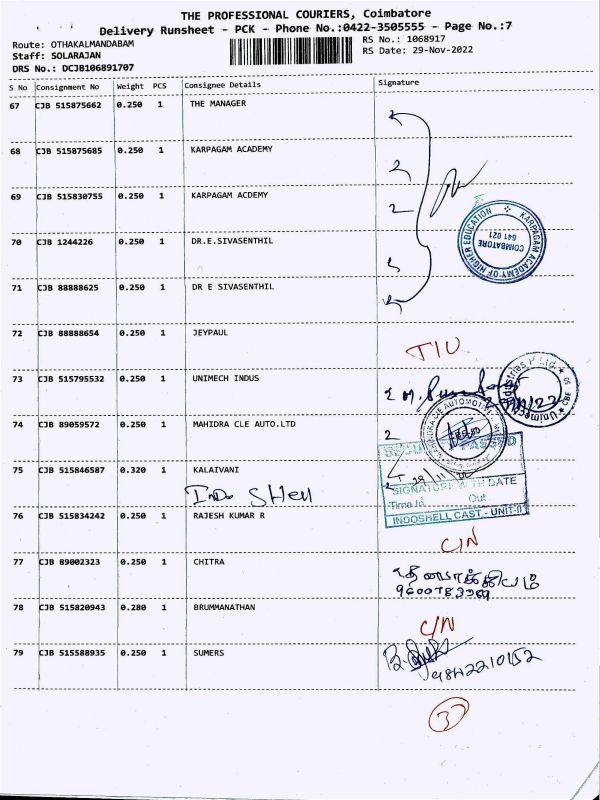 THE PROFESSIONAL COURIERS, Coimbatore
Delivery Runsheet - PCK - Phone No.:0422-3505555 - Page No.:7
Route: OTHAKALMANDABAM
Staff: SOLARAJAN
DRS No.: DCJB106891707
RS No.: 1068917
RS Date: 29-Nov-2022
S No Consignment No Weight PCS Consignee Details Signature
67 CJB 515875662 0.250 1 THE MANAGER
68 CJB 515875685 0.250 1 KARPAGAM ACADEMY
69 CJB 515830755 0.250 1 KARPAGAM ACDEMY
KARPAGAM ACADEMY OF HIGHER EDUCATION
COIMBATORE
641 021
70 CJB 1244226 0.250 1 DR.E.SIVASENTHIL
71 CJB 88888625 0.250 1 DR E SIVASENTHIL
72 CJB 88888654 0.250 1 JEYPAUL
TIU
73 CJB 515795532 0.250 1 UNIMECH INDUS
74 CJB 89059572 0.250 1 MAHIDRA CLE AUTO.LTD
75 CJB 515846587 0.320 1 KALAIVANI
Indo Shell
SIGNATURE WITH DATE
Time In Out
INDOSHELL CAST.- UNIT-II
76 CJB 515834242 0.250 1 RAJESH KUMAR R
C/N
77 CJB 89002323 0.250 1 CHITRA
78 CJB 515820943 0.280 1 BRUMMANATHAN
C/N
79 CJB 515588935 0.250 1 SUMERS
9842210152
37